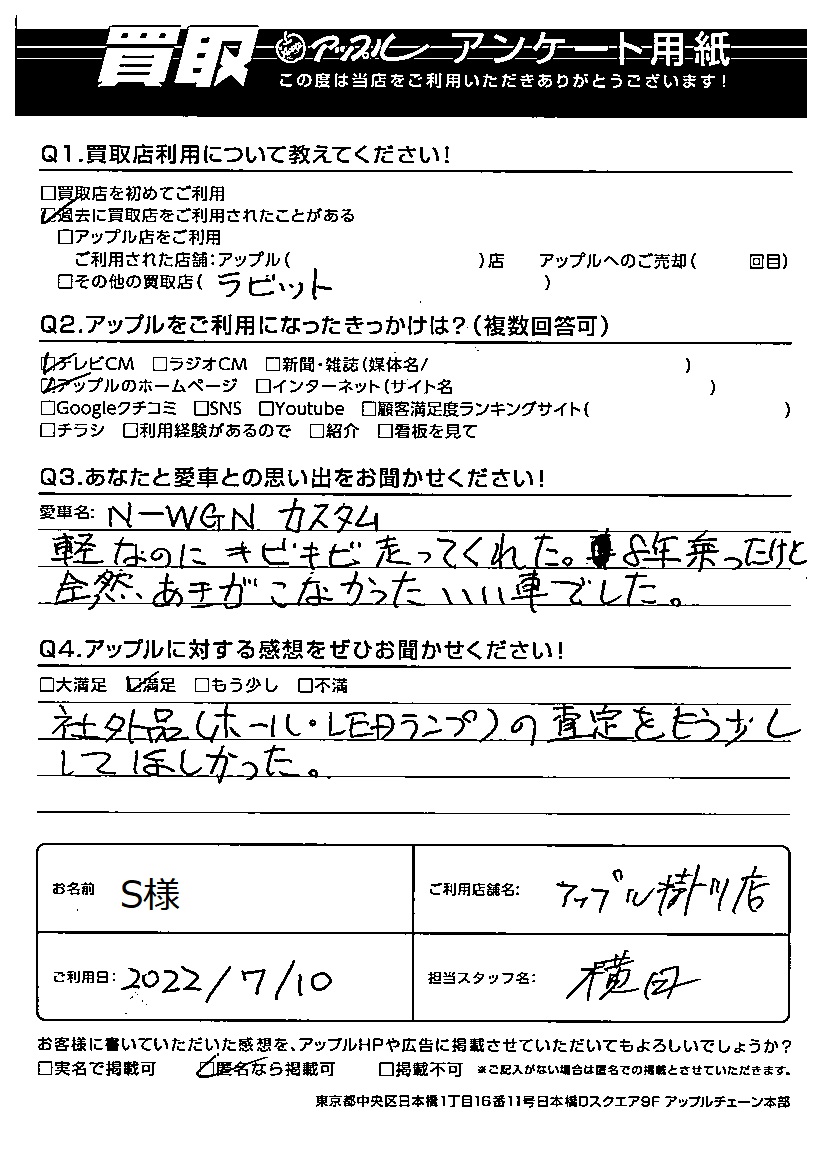 買取 Apple アップル アンケート用紙
この度は当店をご利用いただきありがとうございます!
Q1.買取店利用について教えてください!
□買取店を初めてご利用
☑過去に買取店をご利用されたことがある
□アップル店をご利用
ご利用された店舗:アップル( )店 アップルへのご売却( 回目)
□その他の買取店( ラビット )
Q2.アップルをご利用になったきっかけは?(複数回答可)
☑テレビCM □ラジオCM □新聞・雑誌(媒体名/ )
☑アップルのホームページ □インターネット(サイト名 )
□Googleクチコミ □SNS □Youtube □顧客満足度ランキングサイト( )
□チラシ □利用経験があるので □紹介 □看板を見て
Q3.あなたと愛車との思い出をお聞かせください!
愛車名: N-WGN カスタム
軽なのにキビキビ走ってくれた。8年乗ったけど
全然、あきがこなかったいい車でした。
Q4.アップルに対する感想をぜひお聞かせください!
□大満足 ☑満足 □もう少し □不満
社外品(ホール・LEDランプ)の査定をもう少し
してほしかった。
お名前 S様 ご利用店舗名: アップル掛川店
ご利用日: 2022/7/10 担当スタッフ名: 横田
お客様に書いていただいた感想を、アップルHPや広告に掲載させていただいてもよろしいでしょうか?
□実名で掲載可 ☑匿名なら掲載可 □掲載不可 ※ご記入がない場合は匿名での掲載とさせていただきます。
東京都中央区日本橋1丁目16番11号日本橋Dスクエア9F アップルチェーン本部